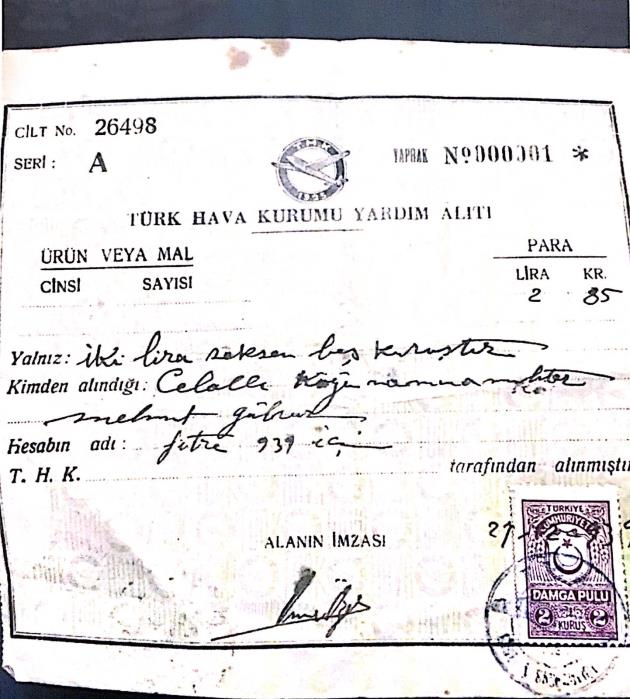 CİLT No. 26498
SERİ : A
T.H.K.
YAPRAK Nº000001 *
TÜRK HAVA KURUMU YARDIM ALITI
ÜRÜN VEYA MAL
PARA
CİNSİ SAYISI
LİRA KR.
2 85
Yalnız: iki lira seksen beş kuruştur
Kimden alındığı: Celallı Köyü namına muhtar
Hesabın adı: fitre 939 için
T. H. K. tarafından alınmıştır
ALANIN İMZASI
TÜRKİYE
CUMHURİYETİ
DAMGA PULU
2 KURUŞ 2